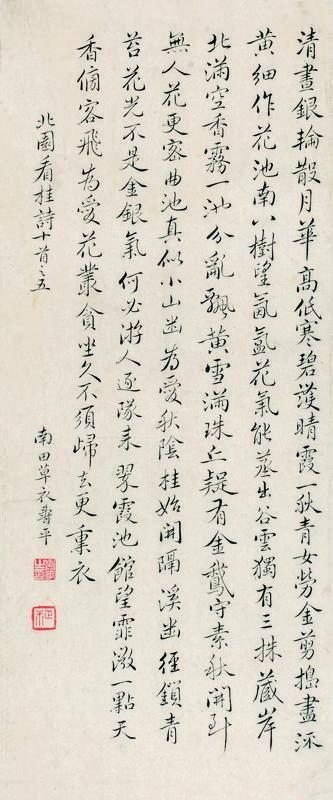 清晝銀輪散月華高低寒碧護晴霞一秋青女勞金剪搗盡深
黃細作花池南八樹望氤氳花氣能蒸出谷雲獨有三株藏岸
北滿空香霧一池分亂飄黃雪滿珠丘疑有金鵞守素秋開到
無人花更密曲池真似小山幽為愛秋陰桂始開隔溪幽徑鎖青
苔花光不是金銀氣何必游人逐隊來翠霞池館望霏微一點天
香傍客飛為愛花叢貪坐久不須歸去更熏衣
北園看桂詩十首之五
南田草衣壽平